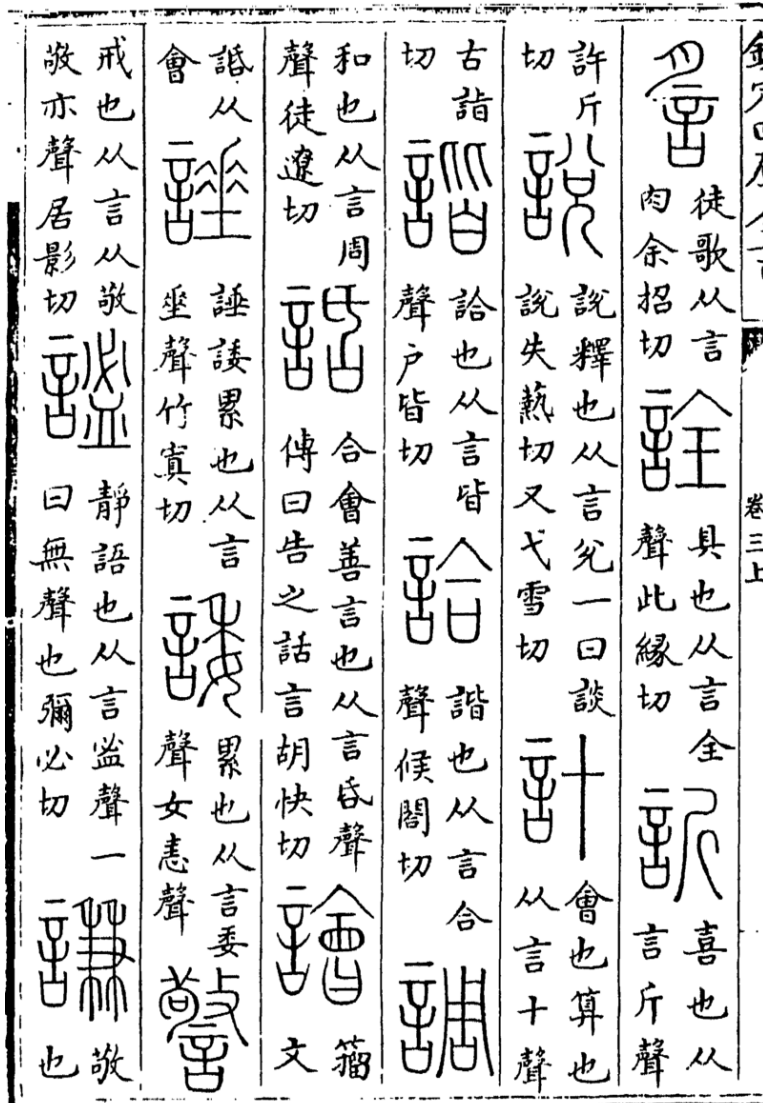 欽定四庫全書 卷三上
䚻 徒歌从言肉余招切 詮 具也从言全聲此緣切 訢 喜也从言斤聲
許斤切 說 說釋也从言兊一曰談說失爇切又弋雪切 計 會也算也从言十聲
古詣切 諧 詥也从言皆聲户皆切 詥 諧也从言合聲候閤切 調
和也从言周聲徒遼切 話 合會善言也从言昏聲傳曰告之話言胡快切 譮 籀文
䛡从會 諈 諈諉累也从言坐聲竹寘切 諉 累也从言委聲女恚聲 警
戒也从言从敬敬亦聲居影切 謐 靜語也从言㿽聲一曰無聲也彌必切 謙 敬也